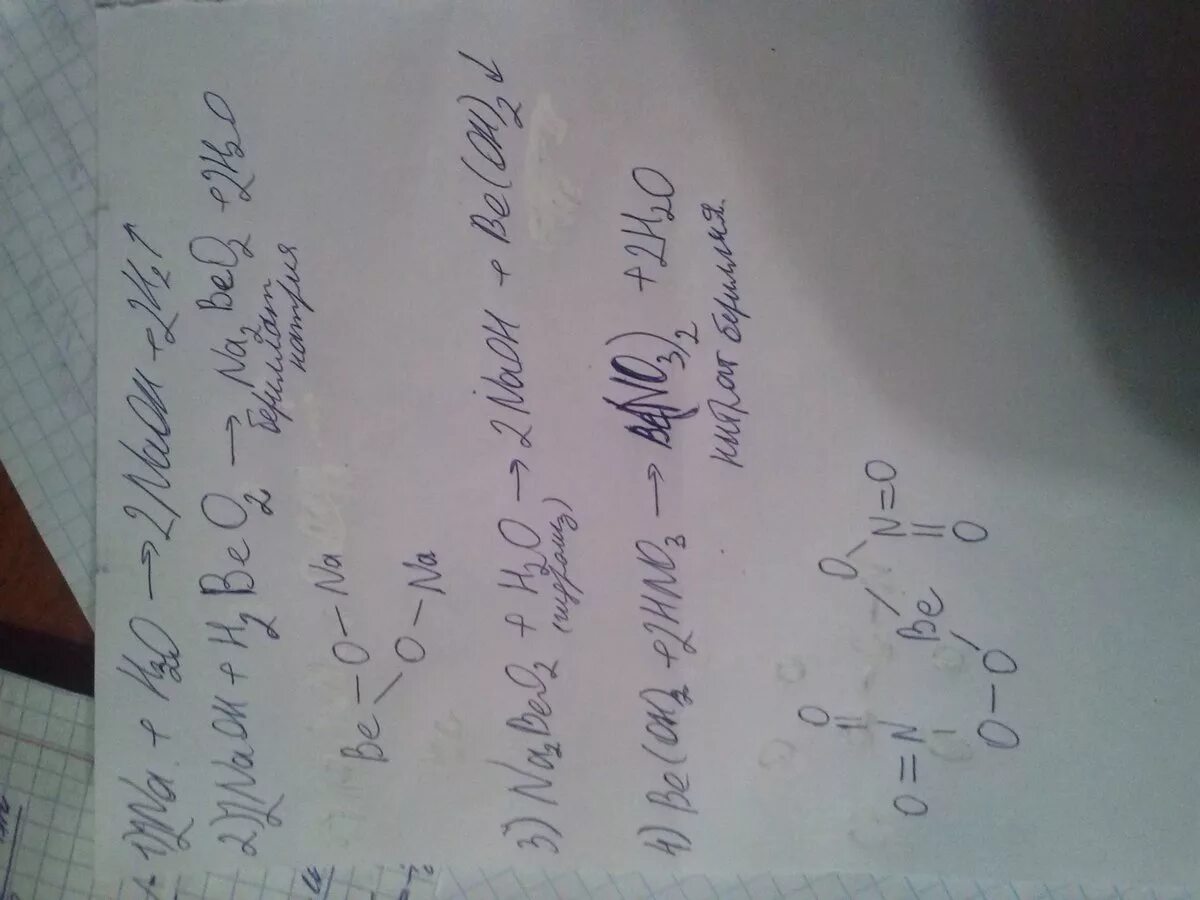 1) 2Na + H2O → 2NaOH + 2H2↑
2) 2NaOH + H2BeO2 → Na2BeO2 + 2H2O
бериллат
натрия
Be – O – Na
O – Na
3) Na2BeO2 + H2O → 2NaOH + Be(OH)2↓
(гидролиз)
4) Be(OH)2 + 2HNO3 → Be(NO3)2 + 2H2O
нитрат бериллия.
O O
O=N Be N=O
O–O O